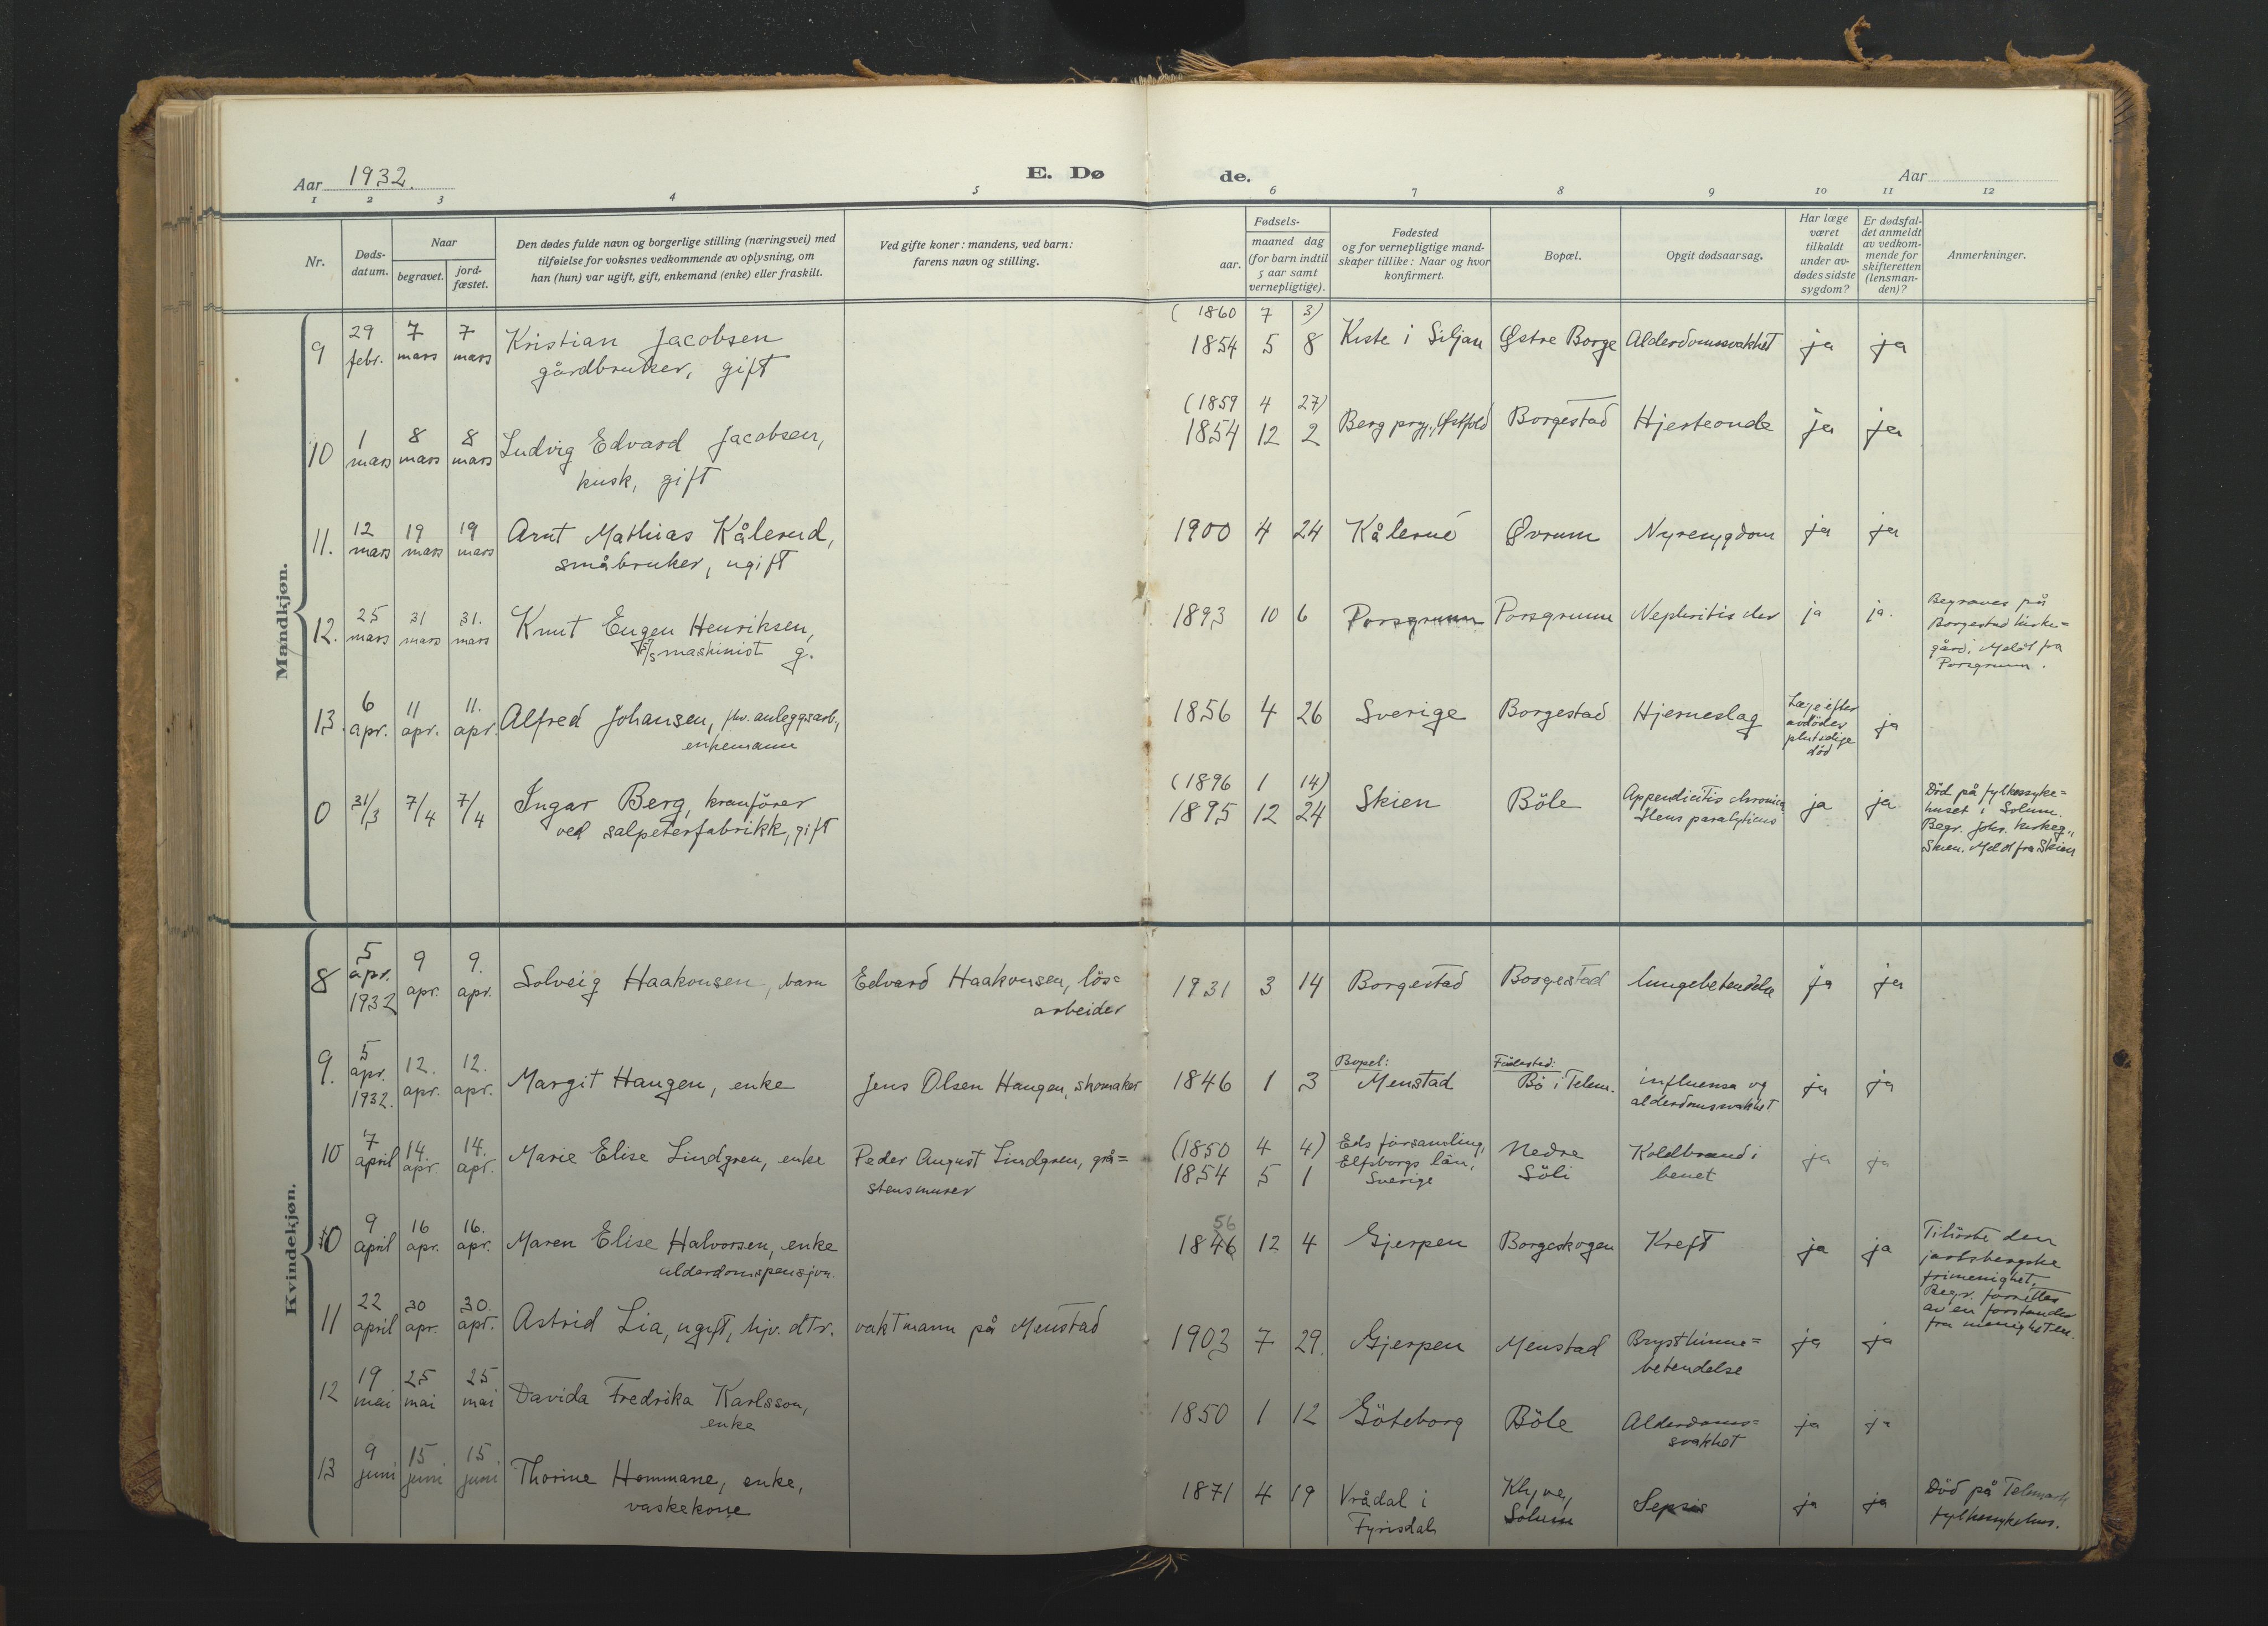 Aar 1932.
E. Dø de.
Aar
1 2 3 4 5 6 7 8 9 10 11 12
Nr.
Døds-
datum.
Naar
begravet.
jord-
fæstet.
Den dødes fulde navn og borgerlige stilling (næringsvei) med
tilføielse for voksnes vedkommende av oplysning, om
han (hun) var ugift, gift, enkemand (enke) eller fraskilt.
Ved gifte koner: mandens, ved barn:
farens navn og stilling.
Fødsels-
aar.
maaned dag
(for barn indtil
5 aar samt
vernepligtige).
Fødested
og for vernepligtige mand-
skaper tillike: Naar og hvor
konfirmert.
Bopæl.
Opgit dødsaarsag.
Har læge
været
tilkaldt
under av-
dødes sidste
sygdom?
Er dødsfal-
det anmeldt
av vedkom-
mende for
skifteretten
(lensman-
den)?
Anmerkninger.
Mandkjøn.
9
29 febr.
7 mars
7 mars
Kristian Jacobsen
gårdbruker, gift
(1860 7 3)
1854 5 8
Kiste i Siljan
Østre Borge
Alderdomssvakhet
ja
ja
10
1 mars
8 mars
8 mars
Ludvig Edvard Jacobsen,
kusk, gift
(1859 4 27)
1854 12 2
Berg prgj., Østfold
Borgestad
Hjerteonde
ja
ja
11.
12 mars
19 mars
19 mars
Arnt Mathias Kålerud,
småbruker, ugift
1900 4 24
Kålerud
Øvrum
Nyresygdom
ja
ja
12.
25 mars
31 mars
31. mars
Knut Eugen Henriksen,
D/S maskinist g.
1893 10 6
Porsgrunn
Porsgrunn
Nephritis chr
ja
ja.
Begraves på
Borgestad kirke=
gård. Meldt fra
Porsgrunn.
13.
6 apr.
11 apr.
11. apr.
Alfred Johansen, fhv. anleggsarb.,
enkemann
1856 4 26
Sverige
Borgestad
Hjerneslag
Læge efter
avdødes
plutselige
død
ja
0
31/3
7/4
7/4
Ingar Berg, kranfører
ved salpeterfabrikk, gift
(1896 1 14)
1895 12 24
Skien
Böle
Appendicitis chronica
Ileus paralyticus
ja
ja
Död på fylkessyke=
huset i Solum.
Begr. Johs. kirkeg.,
Skien. Meldt fra Skien
Kvindekjøn.
8
5 apr. 1932
9 apr.
9. apr.
Solveig Haakonsen, barn
Edvard Haakonsen, lös=
arbeider
1931 3 14
Borgestad
Borgestad
Lungebetendelse
ja
ja
9.
5 apr. 1932.
12. apr.
12. apr.
Margit Haugen, enke
Jens Olsen Haugen, skomaker
1846 1 3
Bopel:
Menstad
Födested:
Bö i Telem.
influensa og
alderdomssvakhet
ja
ja
10
7 april
14. apr.
14. apr.
Marie Elise Lindgren, enke
Peder August Lindgren, grå=
stensmurer
(1850 4 4)
1854 5 1
Eds församling,
Elfsborgs län,
Sverige
Nedre
Söli
Koldbrand i
benet
ja
ja
10
9 april
16 apr.
16. apr.
Maren Elise Halvorsen, enke
alderdomspensjon.
56
1846 12 4
Gjerpen
Borgeskogen
Kreft
ja
ja
Tilhörte den
jarlsbergske
frimenighet.
Begr. forrettes
av en forstander
fra menigheten.
11
22 april
30 apr.
30. apr.
Astrid Lia, ugift, hjv. dtr.
vaktmann på Menstad
1903 7 29.
Gjerpen
Menstad
Brysthinne=
betendelse
ja
ja
12
19 mai
25 mai
25 mai
Davida Fredrika Karlsson,
enke
1850 1 12
Göteborg
Böle
Alderdoms=
svakhet
ja
ja
13
9 juni
15 juni
15 juni
Thorine Hommane, enke,
vaskekone
1871 4 19
Vrådal i
Fyrisdal
Klyve,
Solum
Sepsis
ja
ja
Död på Telemark
fylkessykehus.